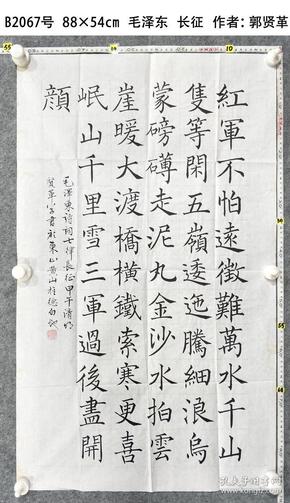 B2067号 88×54cm 毛泽东 长征 作者:郭贤革
紅軍不怕遠徵難萬水千山
隻等閑五嶺逶迤騰細浪烏
蒙磅礴走泥丸金沙水拍雲
崖暖大渡橋橫鐵索寒更喜
岷山千里雪三軍過後盡開
顔
毛澤東詩詞七律長征甲午清明